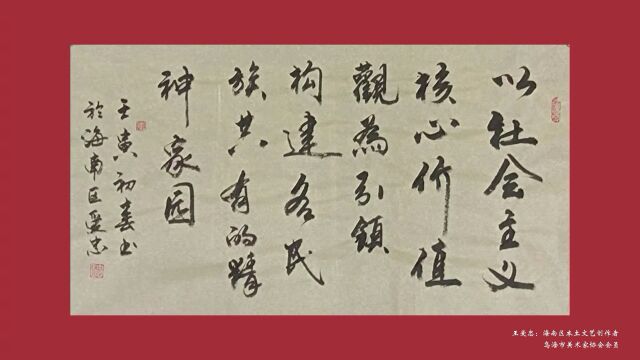 以社会主义
核心价值
觀為引領
构建各民
族共有的精
神家园
壬寅初春书
於海南区爱忠
王爱忠：海南区本土文艺创作者
乌海市美术家协会会员